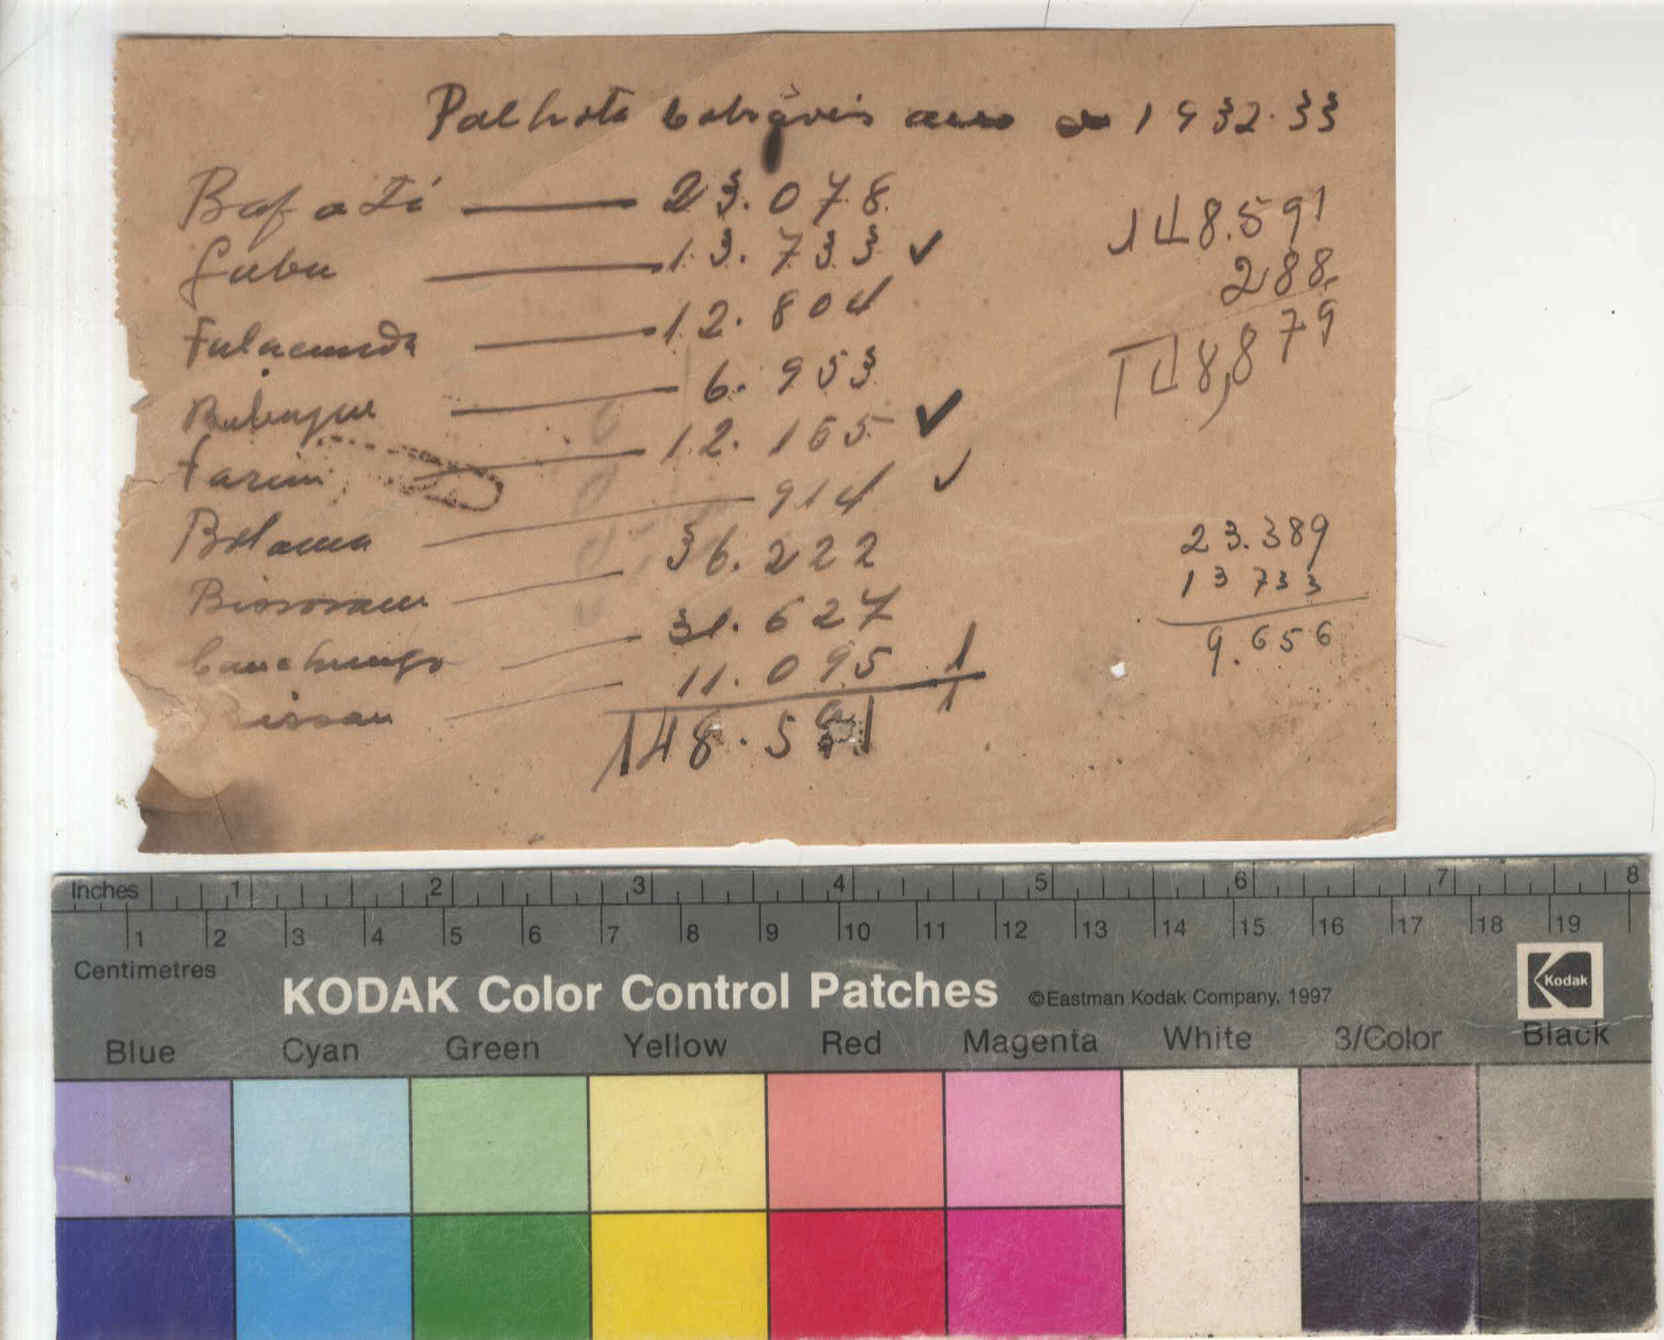 Palhota cobráveis ano de 1932.33
Bafatá — 23.078
Gabu — 13.733 ✓
Fulacunda — 12.804
Bubaque — 6.953
Farim — 12.165 ✓
Bolama — 914 ✓
Bissoram — 36.222
Canchungo — 31.627
Bissau — 11.095
148.591
1
1
148.591
288
148,879
23.389
13 733
9.656
Inches 1 2 3 4 5 6 7 8
1 2 3 4 5 6 7 8 9 10 11 12 13 14 15 16 17 18 19
Centimetres
KODAK Color Control Patches ©Eastman Kodak Company, 1997 Kodak
Blue Cyan Green Yellow Red Magenta White 3/Color Black